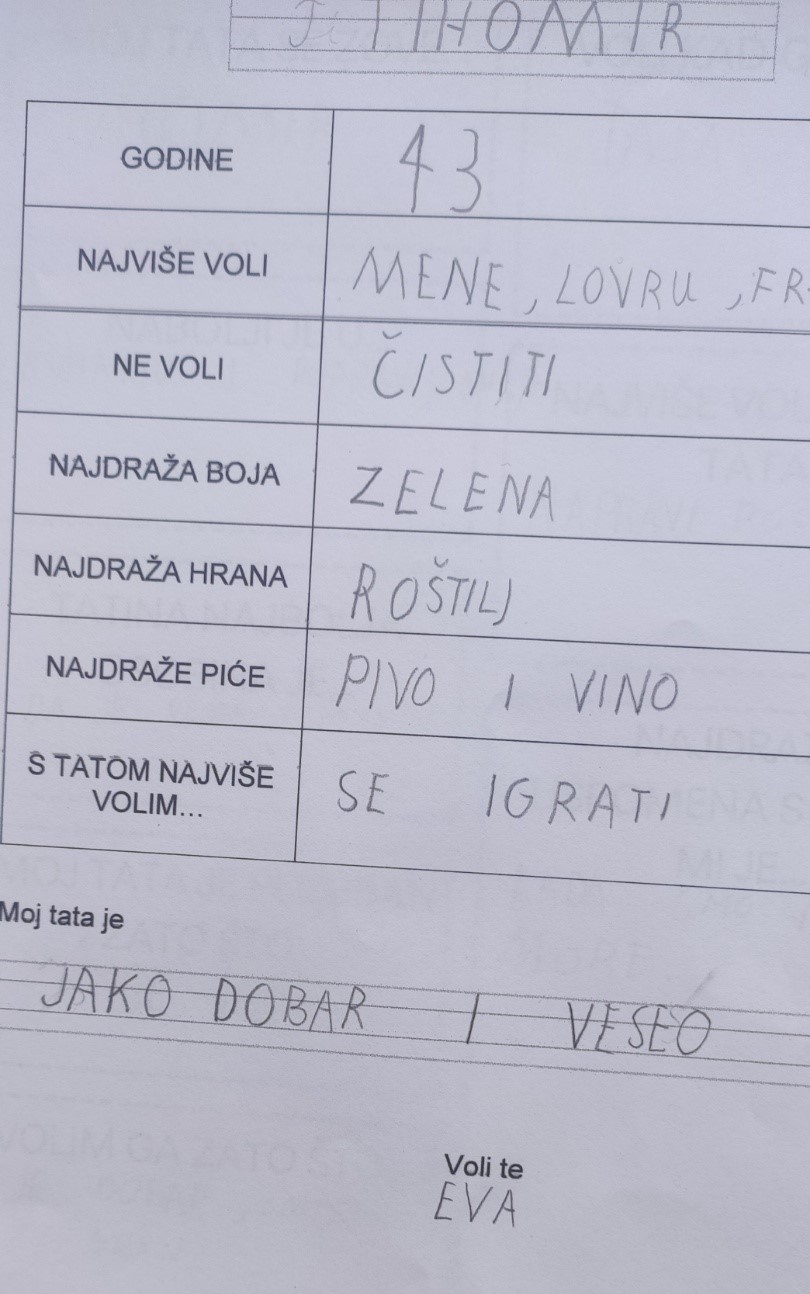 TIHOMIR
GODINE 43
NAJVIŠE VOLI MENE, LOVRU, FR
NE VOLI ČISTITI
NAJDRAŽA BOJA ZELENA
NAJDRAŽA HRANA ROŠTILJ
NAJDRAŽE PIĆE PIVO I VINO
S TATOM NAJVIŠE
VOLIM... SE IGRATI
Moj tata je
JAKO DOBAR I VESEO
Voli te
EVA